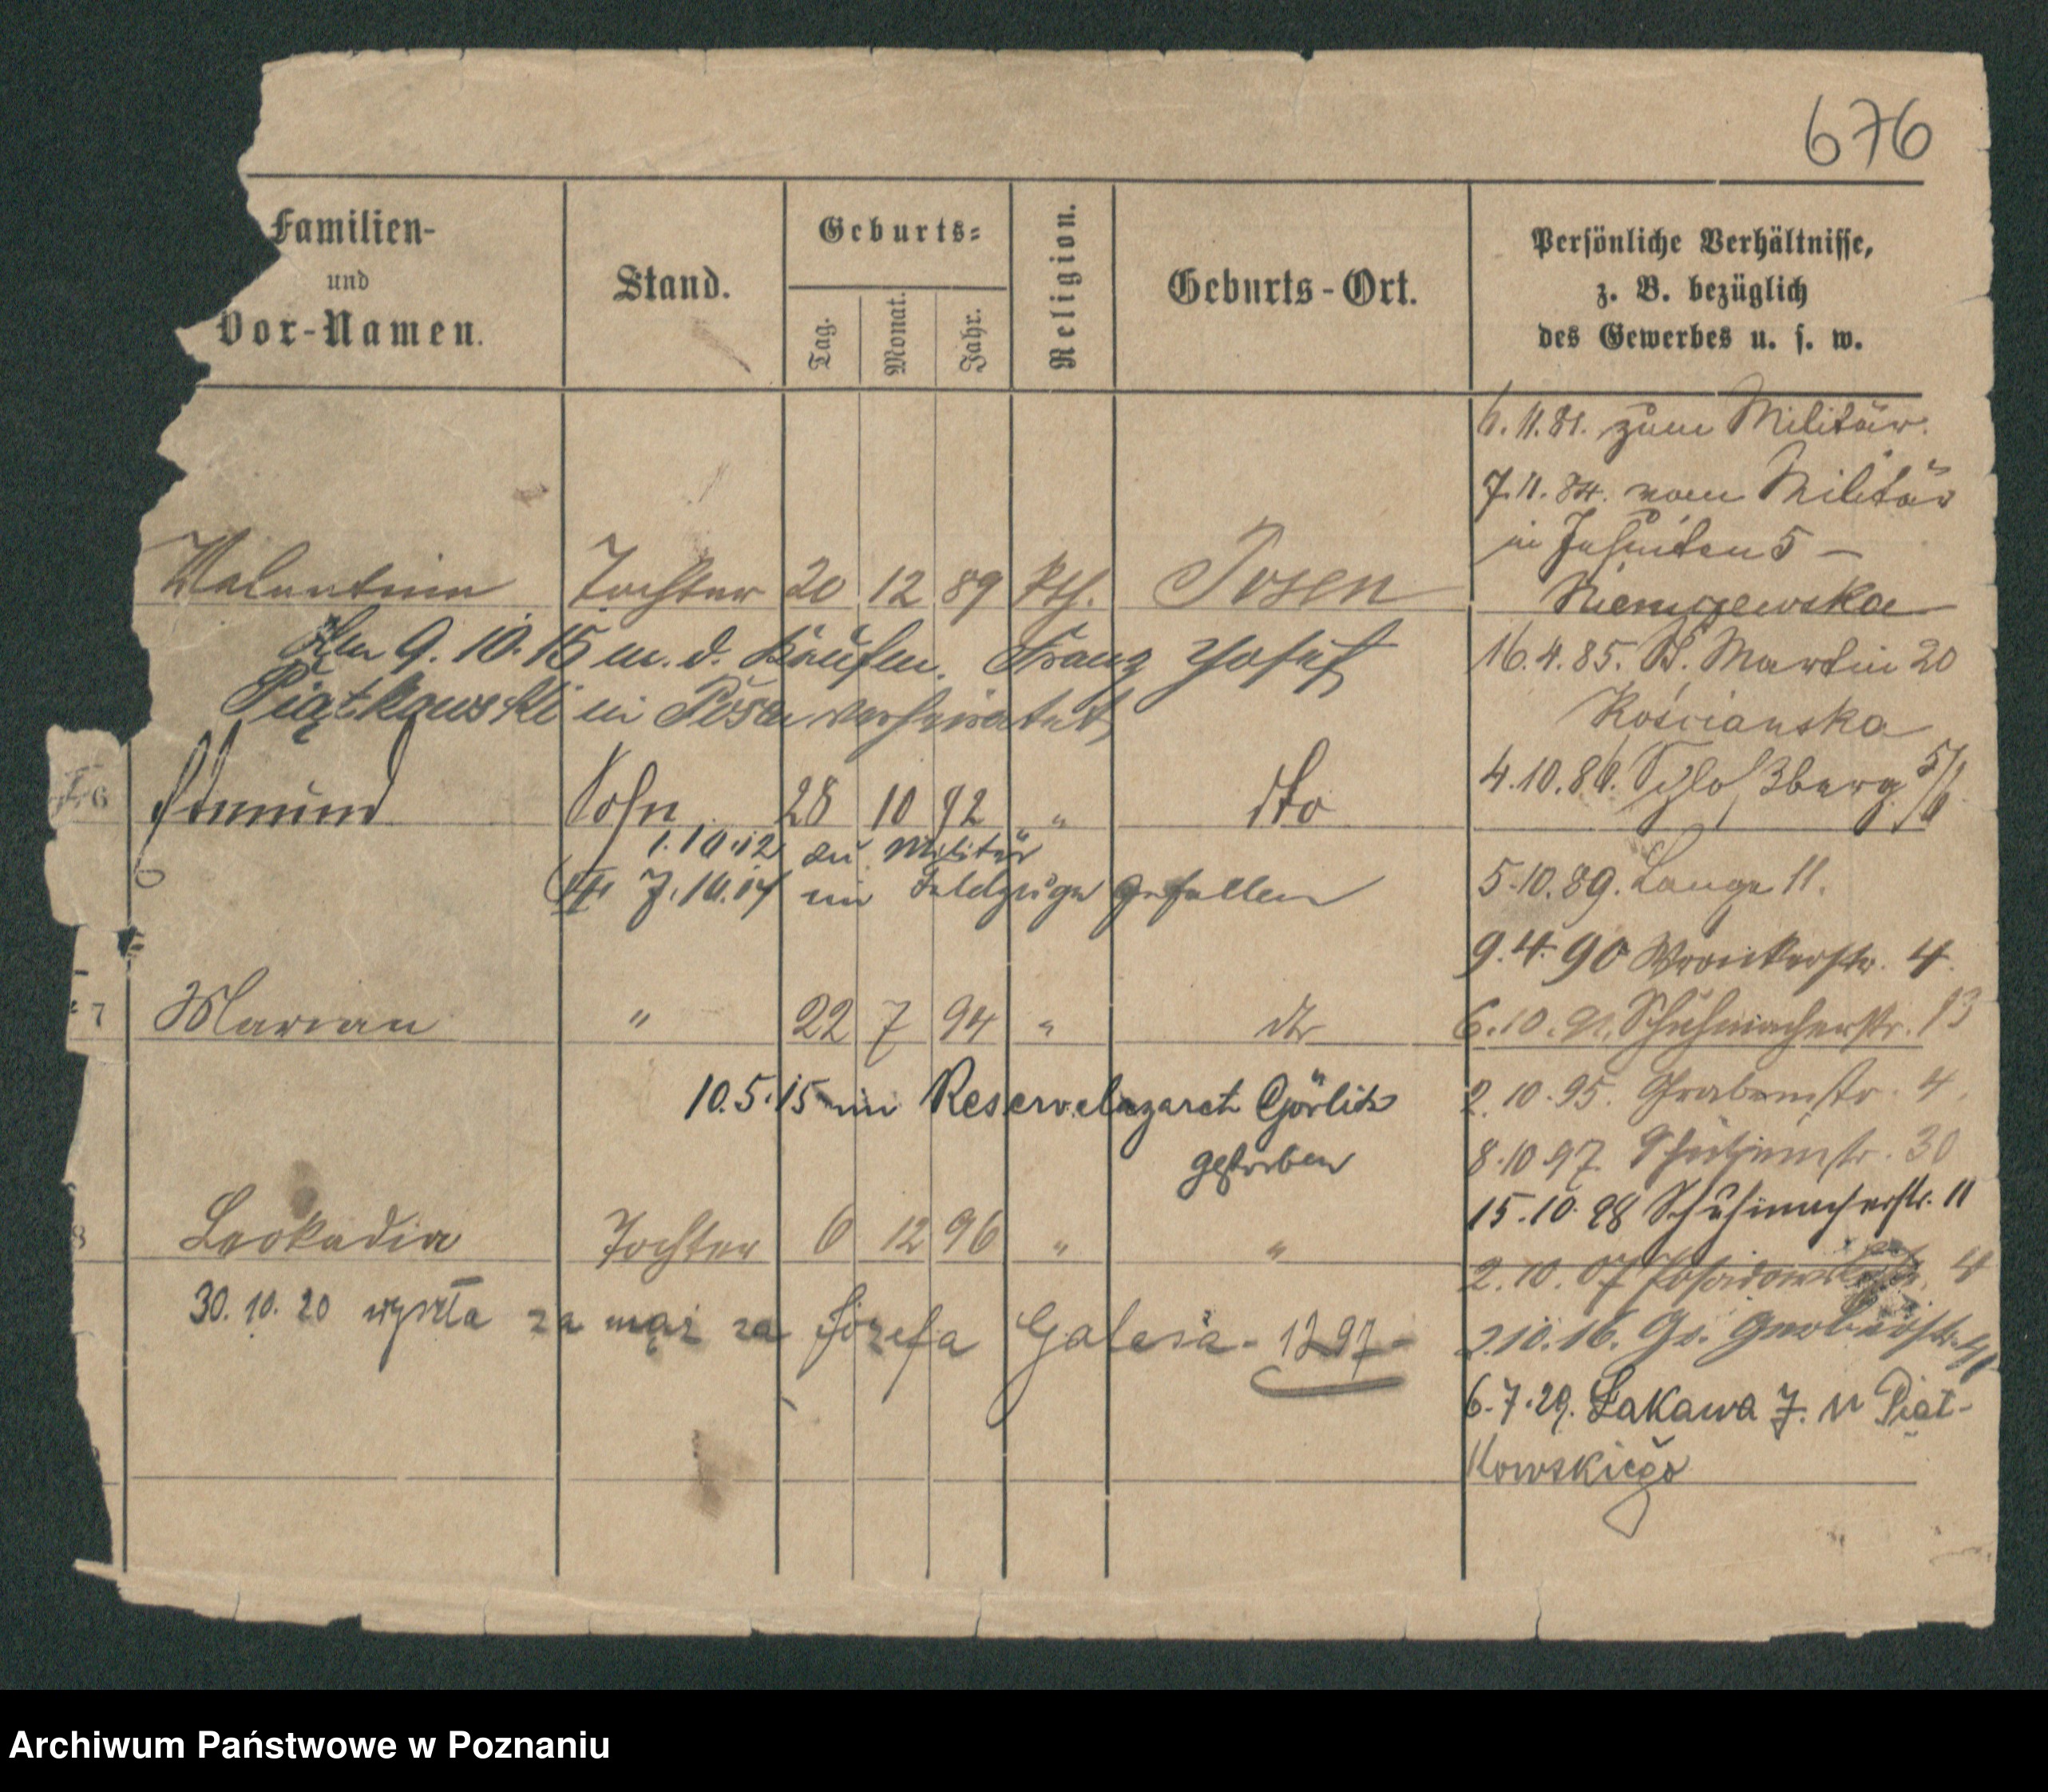 676
Familien-
und
Vor-Namen.
Stand.
Geburts-
Tag.
Monat.
Jahr.
Religion.
Geburts-Ort.
Persönliche Verhältnisse,
z. B. bezüglich
des Gewerbes u. s. w.
6.11.81. zum Militär.
7.11.84. vom Militär
in Jesuiten 5 –
Valentine Tochter 20 12 89 kth. Posen
Am 9.10.15 m. d. Kaufm. Franz Josef
Piątkowski in Posen verheiratet
16.4.85. St. Martin 20
Kościańska
6 Edmund Sohn 28 10 92 " dto
4.10.86. Schloßberg 5/6
1.10.12 zu Militär
7.10.14 im Feldzuge gefallen
5.10.89. Lange 11.
9.4.90 Wronkerstr. 4.
7 Marian " 22 7 94 " dto
6.10.91. Schuhmacherstr. 13
10.5.15 im Reservelazarett Görlitz
gestorben
2.10.95. Grabenstr. 4.
8.10.97. Schützenstr. 30
15.10.98 Schuhmacherstr. 11
8 Leokadia Tochter 6 12 96 " "
2.10.07 4
30.10.20 wyszła za mąż za Józefa Galasia - 1297 -
2.10.16. Gr. Gerberstr. 41
6.7.29. Łąkawa 7. u Piąt-
kowskiego
Archiwum Państwowe w Poznaniu